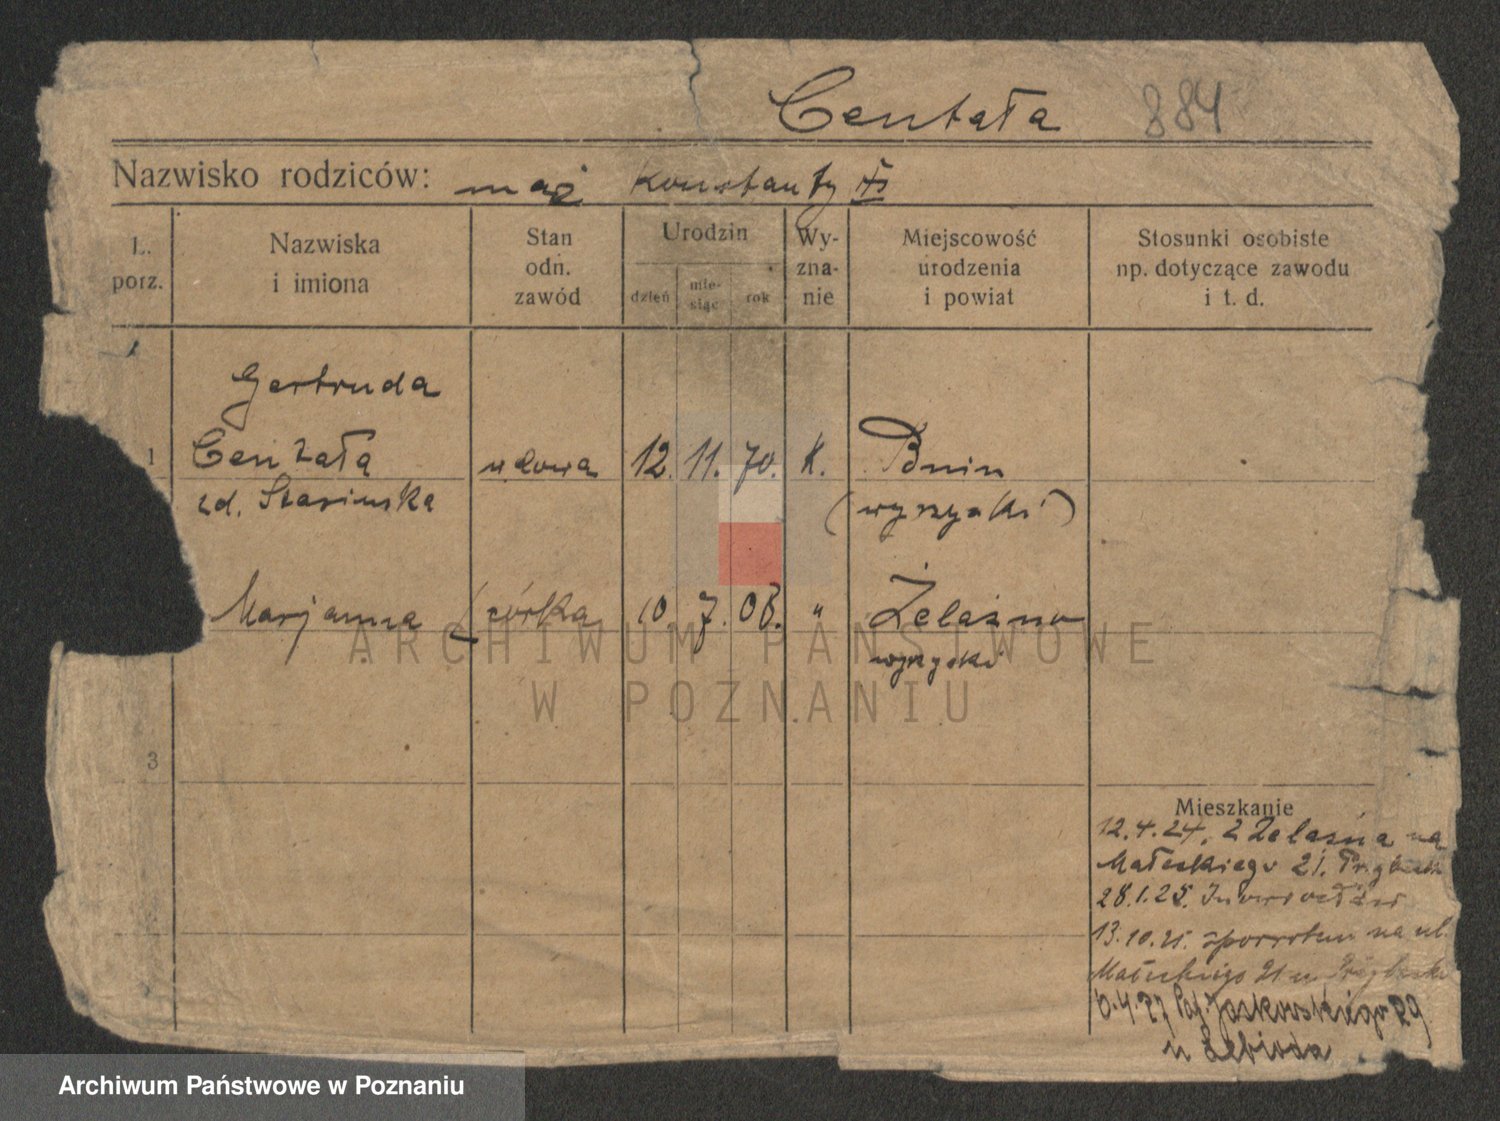 Centała 884
Nazwisko rodziców: mąż Konstanty
L. porz.
Nazwiska i imiona
Stan odn. zawód
Urodzin
dzień miesiąc rok
Wyznanie
Miejscowość urodzenia i powiat
Stosunki osobiste np. dotyczące zawodu i t. d.
Gertruda
1 Centała wdowa 12. 11. 70. K. Bnin
zd. Stasińska (wyrzyski)
Marjanna córka 10 7. 08. " Żelazno
wyrzyski
3
Mieszkanie
12.4.24. z Żelazna na
Małeckiego 21.
28.1.25. Inowrocław
13.10.25. na ul.
Małeckiego 21 u
6.4.27 Jackowskiego 29
u
ARCHIWUM PAŃSTWOWE
W POZNANIU
Archiwum Państwowe w Poznaniu